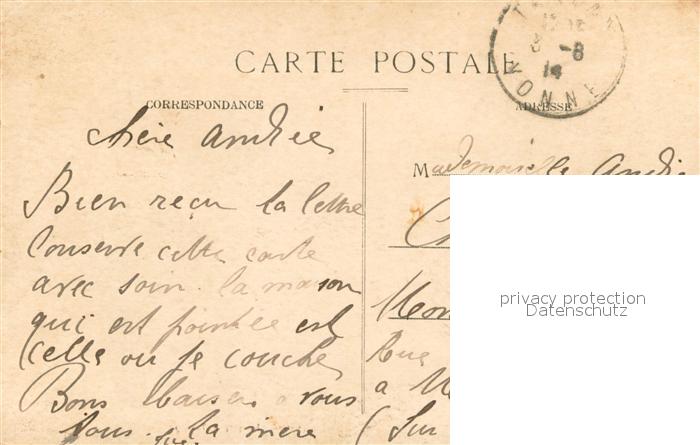 CARTE POSTALE
8 -8
14
YONNE
CORRESPONDANCE
ADRESSE
chère Andrée
Bien reçu ta lettre
Conserve cette carte
avec soin. la maison
qui est pointée est
celle ou je couche
Bons baisers a vous
tous. la mère
Mademoiselle Andrée
Rue
a
(Sur
privacy protection
Datenschutz